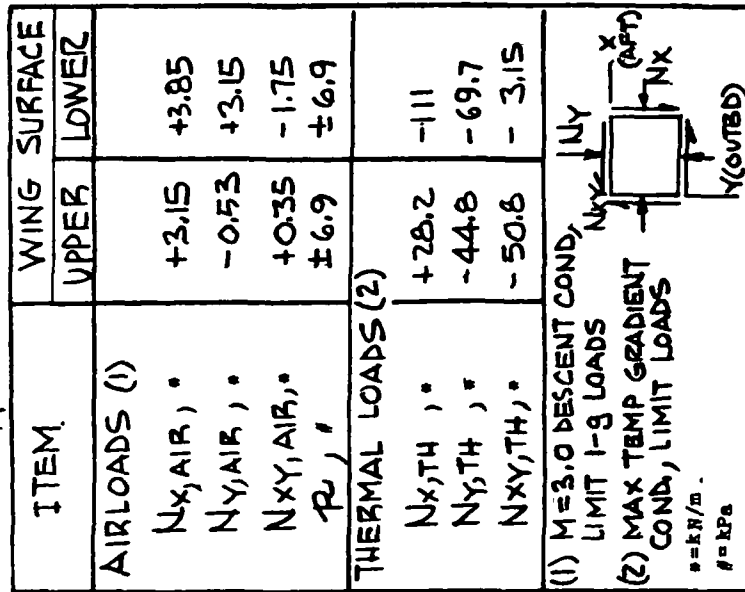 ITEM WING SURFACE
UPPER LOWER
AIRLOADS (1)
NX,AIR, * +3.15 +3.85
NY,AIR, * -0.53 +3.15
NXY,AIR, * +0.35 -1.75
p, # ±6.9 ±6.9
THERMAL LOADS (2)
NX,TH, * +28.2 -111
NY,TH, * -44.8 -69.7
NXY,TH, * -50.8 -3.15
(1) M=3.0 DESCENT COND,
LIMIT 1-g LOADS
(2) MAX TEMP GRADIENT
COND, LIMIT LOADS
*=kN/m.
#=kPa
NY
NXY
X
(AFT)
NX
Y(OUTBD)